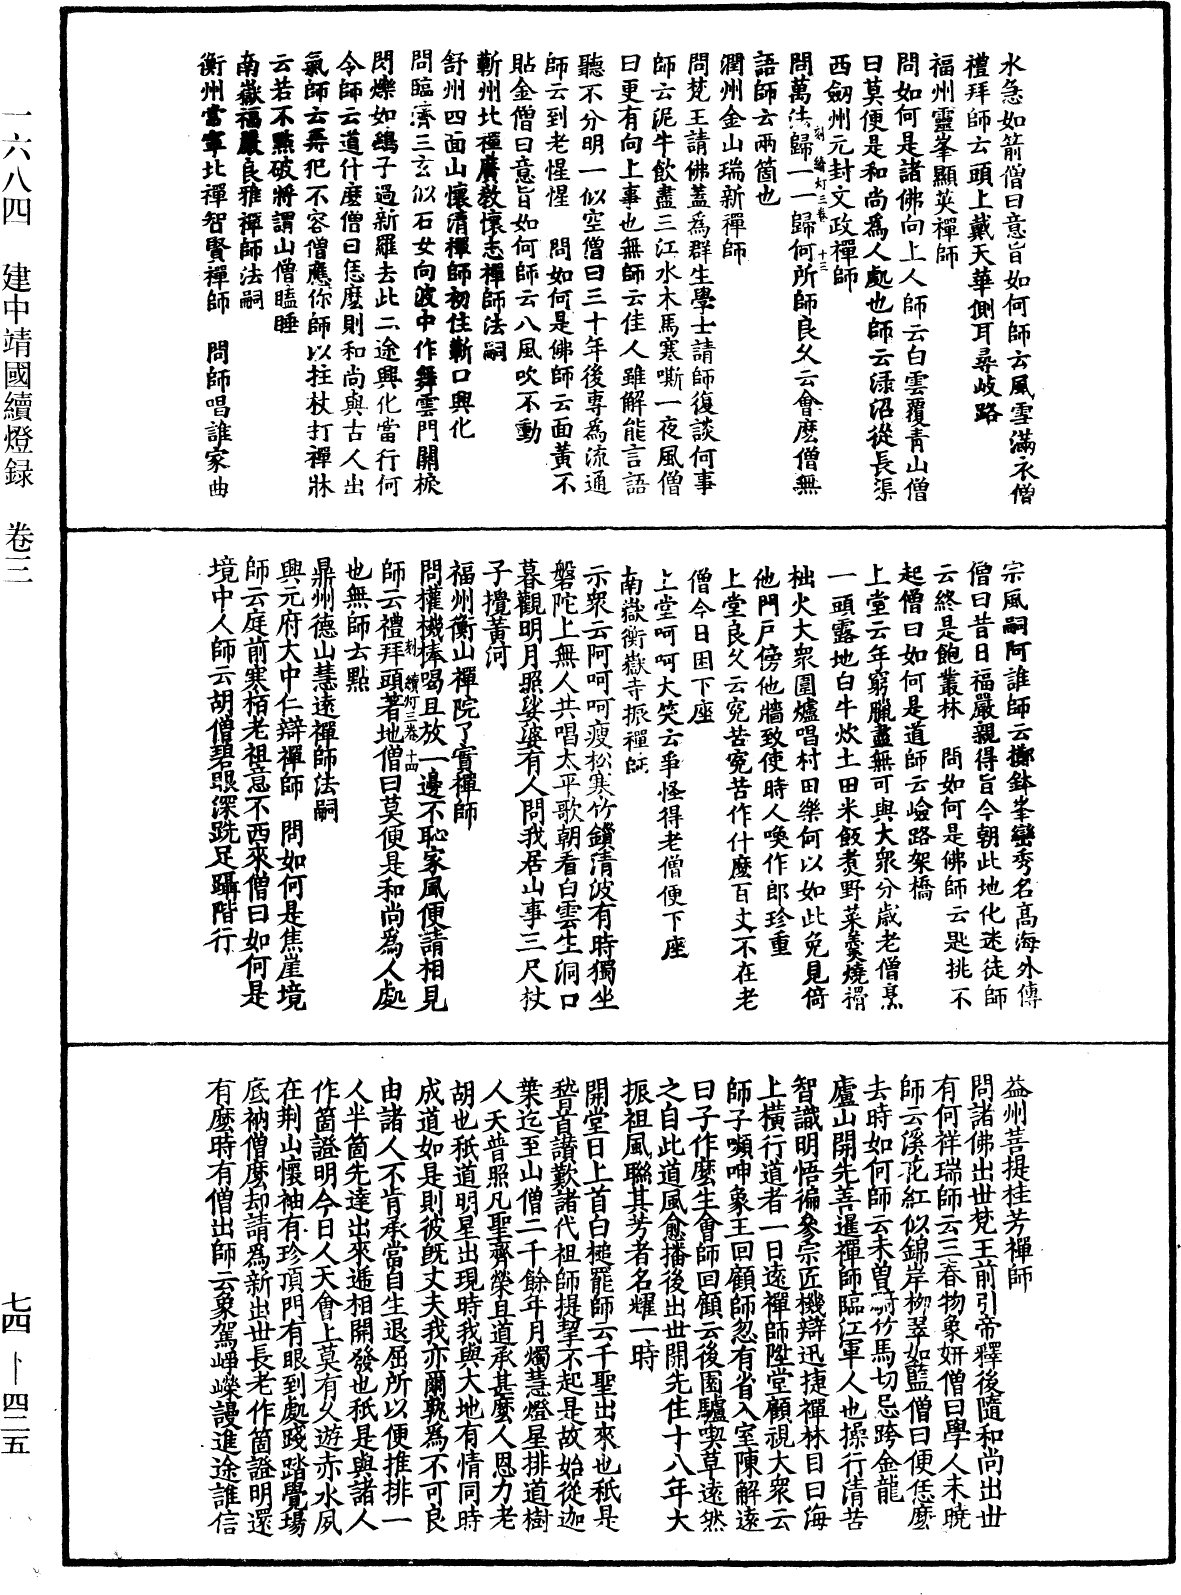 水急如箭僧曰意旨如何師云風雪滿衣僧
禮拜師云頭上戴天華側耳尋歧路
福州靈峯顯英禪師
問如何是諸佛向上人師云白雲覆青山僧
曰莫便是和尚為人處也師云渌沼從長渠
西劒州元封文政禪師
刻 續灯三卷 十三
問萬法歸一一歸何所師良久云會麽僧無
語師云兩箇也
潤州金山瑞新禪師
問梵王請佛蓋為群生學士請師復談何事
師云泥牛飲盡三江水木馬寒嘶一夜風僧
曰更有向上事也無師云佳人雖解能言語
聽不分明一似空僧曰三十年後專為流通
師云到老惺惺 問如何是佛師云面黃不
貼金僧曰意旨如何師云八風吹不動
蘄州北禪廣教懷志禪師法嗣
舒州四面山懷清禪師初住蘄口興化
問臨濟三玄似石女向波中作舞雲門關棙
閃爍如鷂子過新羅去此二途興化當行何
今師云道什麽僧曰恁麽則和尚與古人出
氣師云再犯不容僧應你師以拄杖打禪牀
云若不點破將謂山僧瞌睡
南嶽福嚴良雅禪師法嗣
衡州常寧北禪智賢禪師 問師唱誰家曲
宗風嗣阿誰師云擲鉢峯巒秀名高海外傳
僧曰昔日福嚴親得旨今朝此地化迷徒師
云終是飽叢林 問如何是佛師云匙挑不
起僧曰如何是道師云嶮路架橋
上堂云年窮臘盡無可與大衆分歲老僧烹
一頭露地白牛炊土田米飯煮野菜羹燒榾
柮火大衆圍爐唱村田樂何以如此免見倚
他門戶傍他牆致使時人喚作郎珍重
上堂良久云寃苦寃苦作什麽百丈不在老
僧今日困下座
上堂呵呵大笑云爭怪得老僧便下座
南嶽衡嶽寺振禪師
示衆云阿呵呵瘦松寒竹鎖清波有時獨坐
磐陀上無人共唱太平歌朝看白雲生洞口
暮觀明月照娑婆有人問我居山事三尺杖
子攪黃河
福州衡山禪院了賓禪師
問權機棒喝且放一邊不恥家風便請相見
刻 續灯三卷 十四
師云禮拜頭著地僧曰莫便是和尚為人處
也無師云點
鼎州德山慧遠禪師法嗣
興元府大中仁辯禪師 問如何是焦崖境
師云庭前寒栢老祖意不西來僧曰如何是
境中人師云胡僧碧眼深跣足躡階行
益州菩提桂芳禪師
問諸佛出世梵王前引帝釋後隨和尚出世
有何祥瑞師云三春物象妍僧曰學人未曉
師云溪花紅似錦岸柳翠如藍僧曰便恁麽
去時如何師云未曽騎竹馬切忌跨金龍
廬山開先善暹禪師臨江軍人也操行清苦
智識明悟徧參宗匠機辯迅捷禪林目曰海
上橫行道者一日遠禪師陞堂顧視大衆云
師子嚬呻象王回顧師忽有省入室陳解遠
曰子作麽生會師回顧云後園驢喫草遠然
之自此道風愈播後出世開先住十八年大
振祖風聯其芳者名耀一時
開堂日上首白槌罷師云千聖出來也秖是
稽首讃歎諸代祖師提挈不起是故始從迦
葉迄至山僧二千餘年月燭慧燈星排道樹
人天普照凡聖齊榮且道承甚麽人恩力老
胡也秖道明星出現時我與大地有情同時
成道如是則彼旣丈夫我亦爾孰為不可良
由諸人不肯承當自生退屈所以便推排一
人半箇先達出來遞相開發也秖是與諸人
作箇證明今日人天會上莫有久遊赤水夙
在荆山懷袖有珍頂門有眼到處踐踏覺場
底衲僧麽却請為新出世長老作箇證明還
有麽時有僧出師云象駕崢嶸謾進途誰信
一六八四 建中靖國續燈録 卷三
七四—四二五